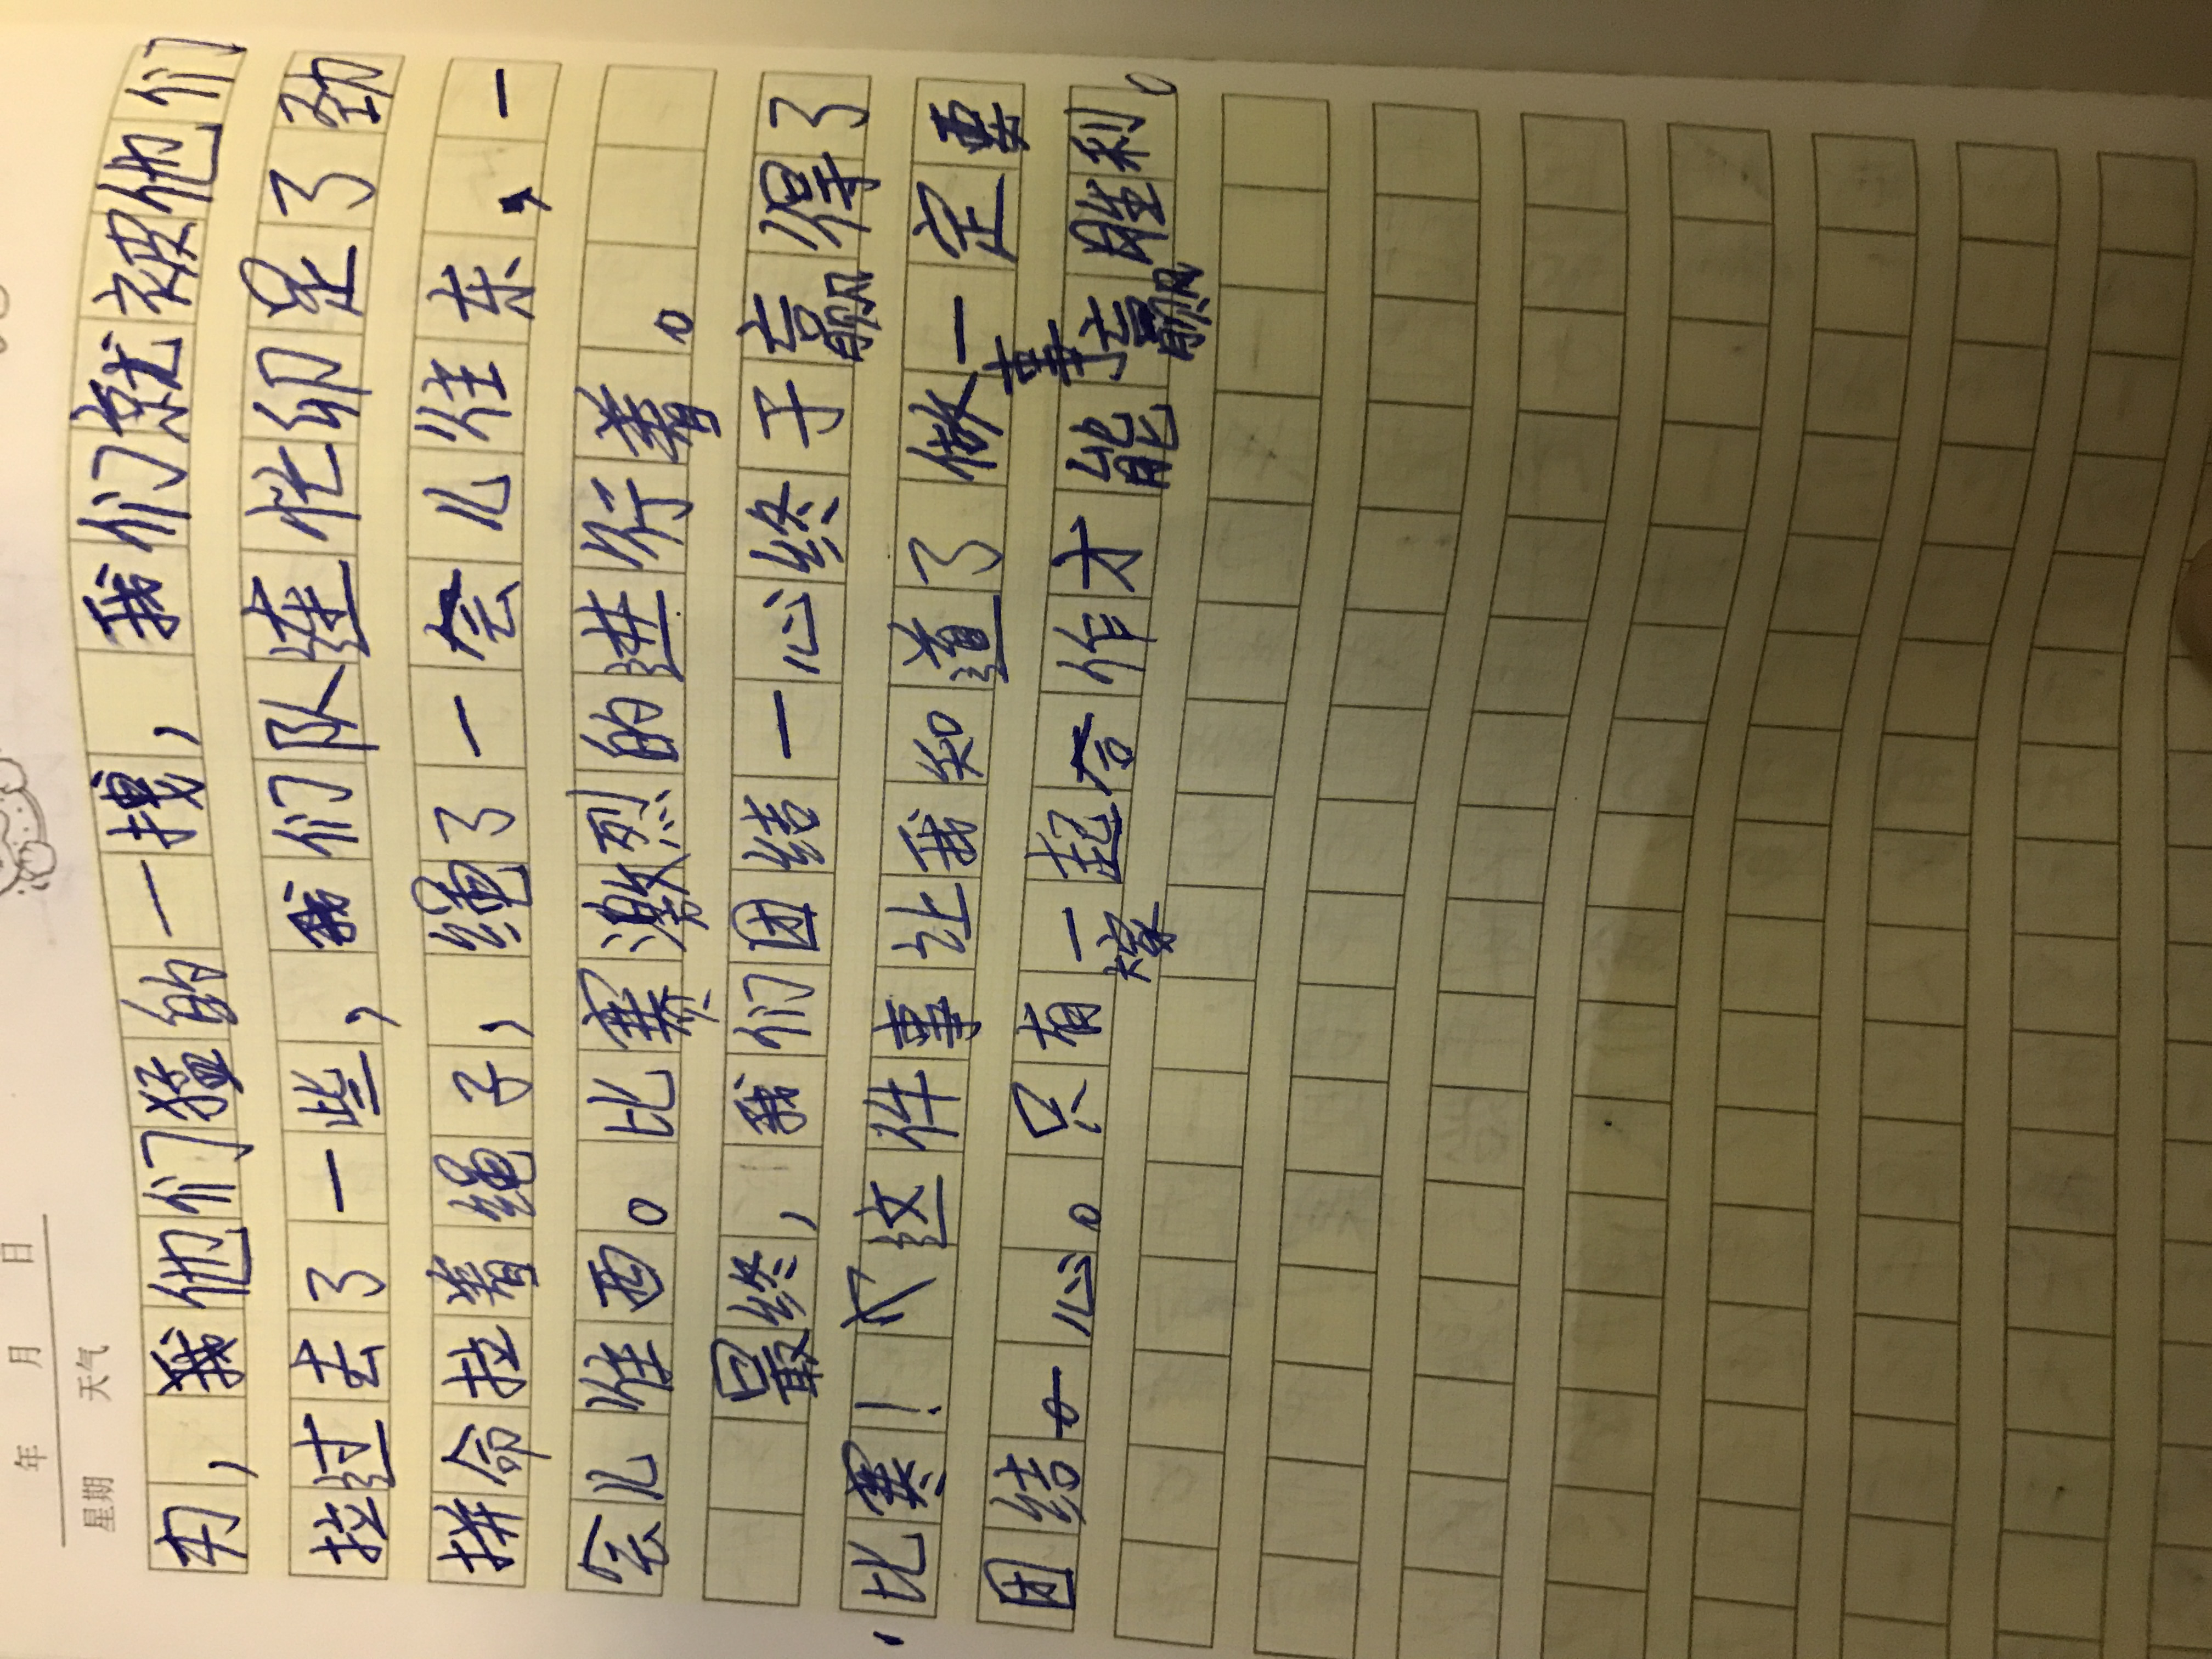 年 月 日
星期 天气
,我他们猛的一拽,我们就被他们
拉过去了一些,我们队连忙卯足了劲
拼命拉着绳子,绳了一会儿往东,一
会儿往西。比赛激烈的进行着。
最终,我们团结一心终于赢得了
比赛!这件事让我知道了做事一定要
团结一心。只有大家一起合作才能赢胜利。